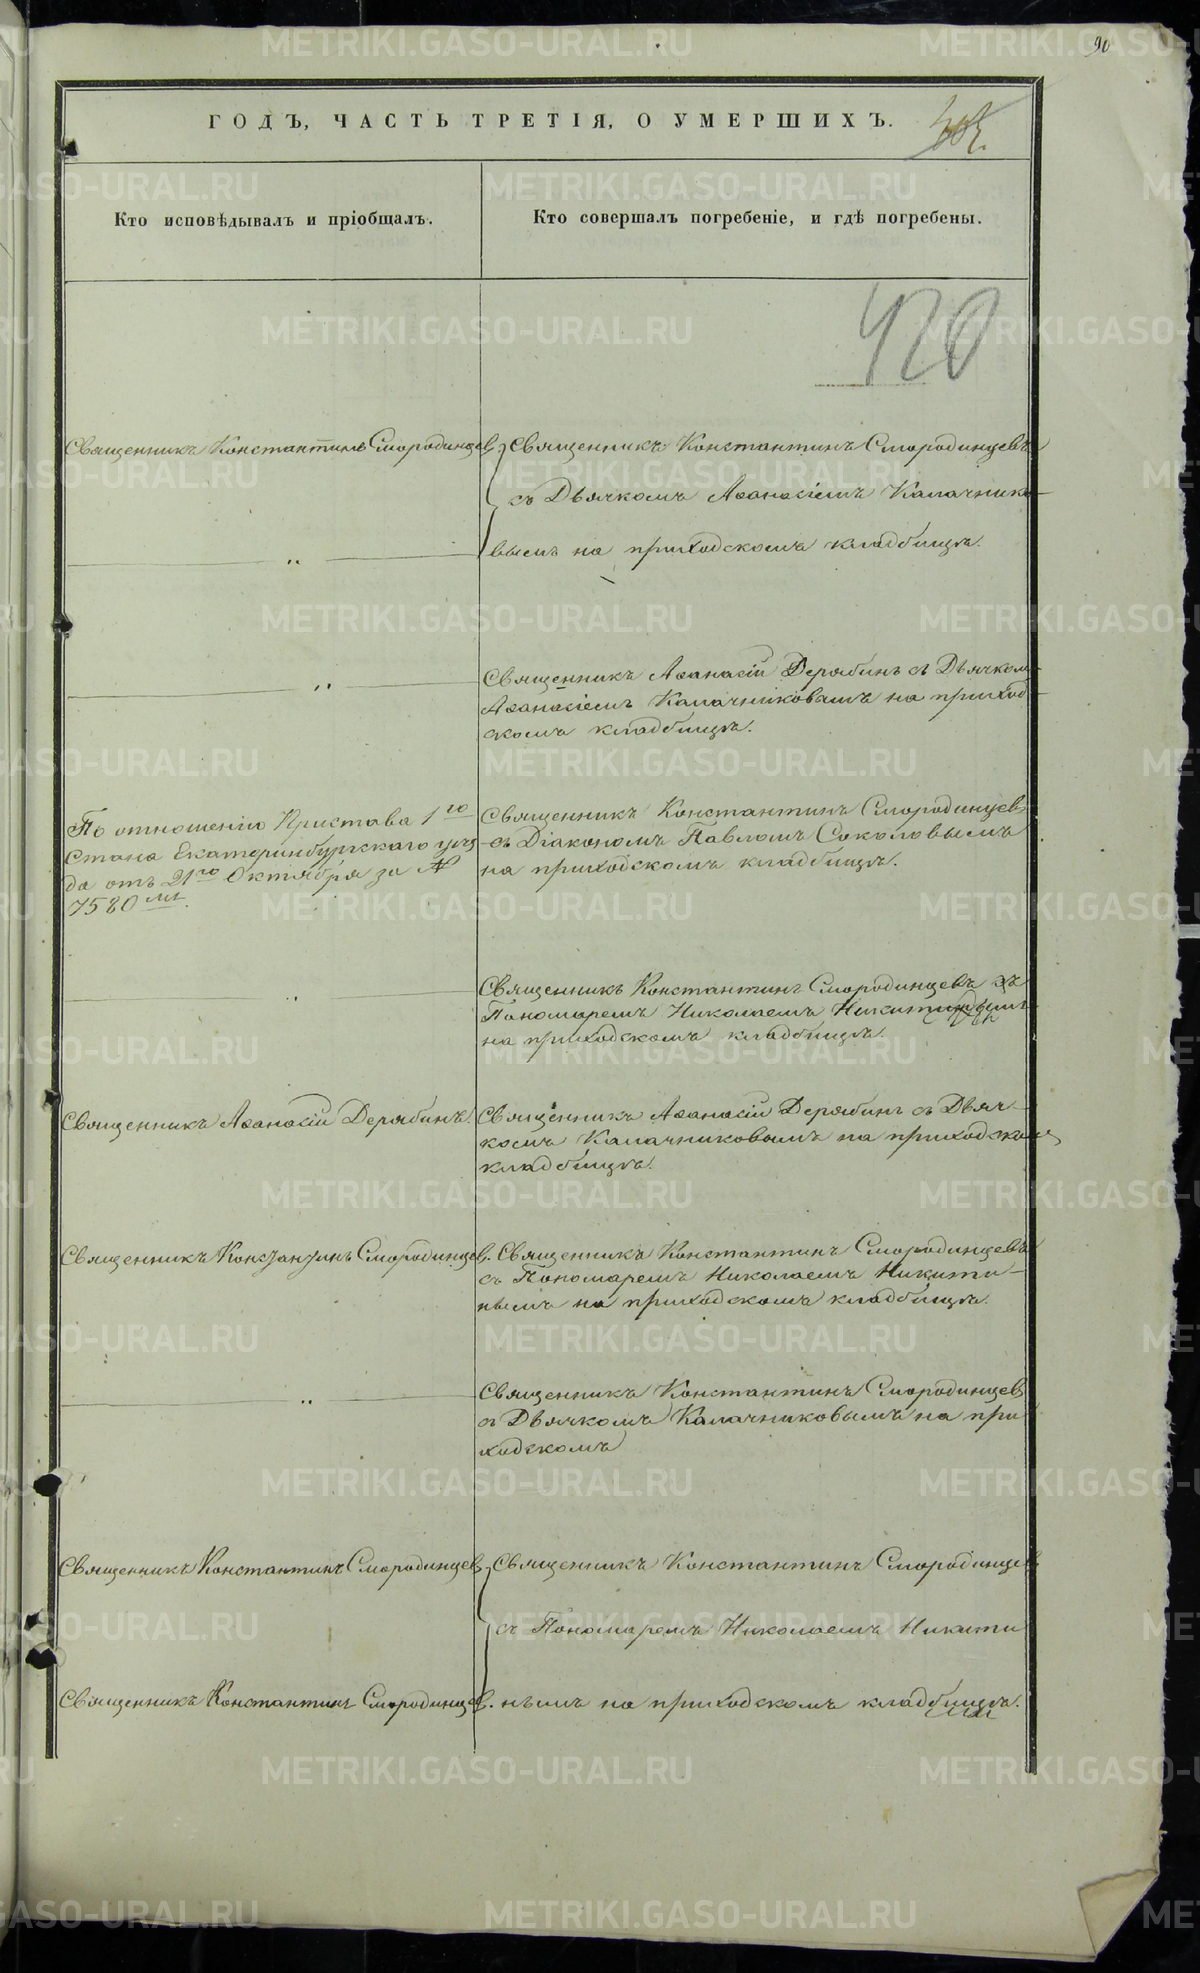 90
ГОДЪ, ЧАСТЬ ТРЕТІЯ, О УМЕРШИХЪ.
Кто исповѣдывалъ и пріобщалъ.
Кто совершалъ погребеніе, и гдѣ погребены.
420
Священникъ Константинъ Смородинцев
Священникъ Константинъ Смородинцевъ
съ Дьячкомъ Аѳанасіемъ Калачнико-
вымъ на приходскомъ кладбищѣ.
Священникъ Аѳанасій Дерябинъ съ Дьячком-
Аѳанасіемъ Калачниковымъ на приход-
скомъ кладбищѣ.
По отношенію Пристава 1го
стана Екатеринбургскаго уѣз-
да отъ 21го Октября за №
7580мъ.
Священникъ Константинъ Смородинцев
съ Діакономъ Павломъ Соколовымъ
на приходскомъ кладбищѣ.
Священникъ Константинъ Смородинцевъ съ
Пономаремъ Николаемъ Никитинымъ
на приходскомъ кладбищѣ.
Священникъ Аѳанасій Дерябинъ.
Священникъ Аѳанасій Дерябинъ съ Дьяч-
комъ Калачниковымъ на приходском
кладбищѣ.
Священникъ Константинъ Смородинцев.
Священникъ Константинъ Смородинцевъ
съ Пономаремъ Николаемъ Никити-
нымъ на приходскомъ кладбищѣ.
Священникъ Константинъ Смородинцев
съ Дьячкомъ Калачниковымъ на при
ходскомъ
Священникъ Константинъ Смородинцев
Священникъ Константинъ Смородинцев
съ Пономаремъ Николаемъ Никити
Священникъ Константинъ Смородинцев.
нымъ на приходскомъ кладбищѣ.
METRIKI.GASO-URAL.RU